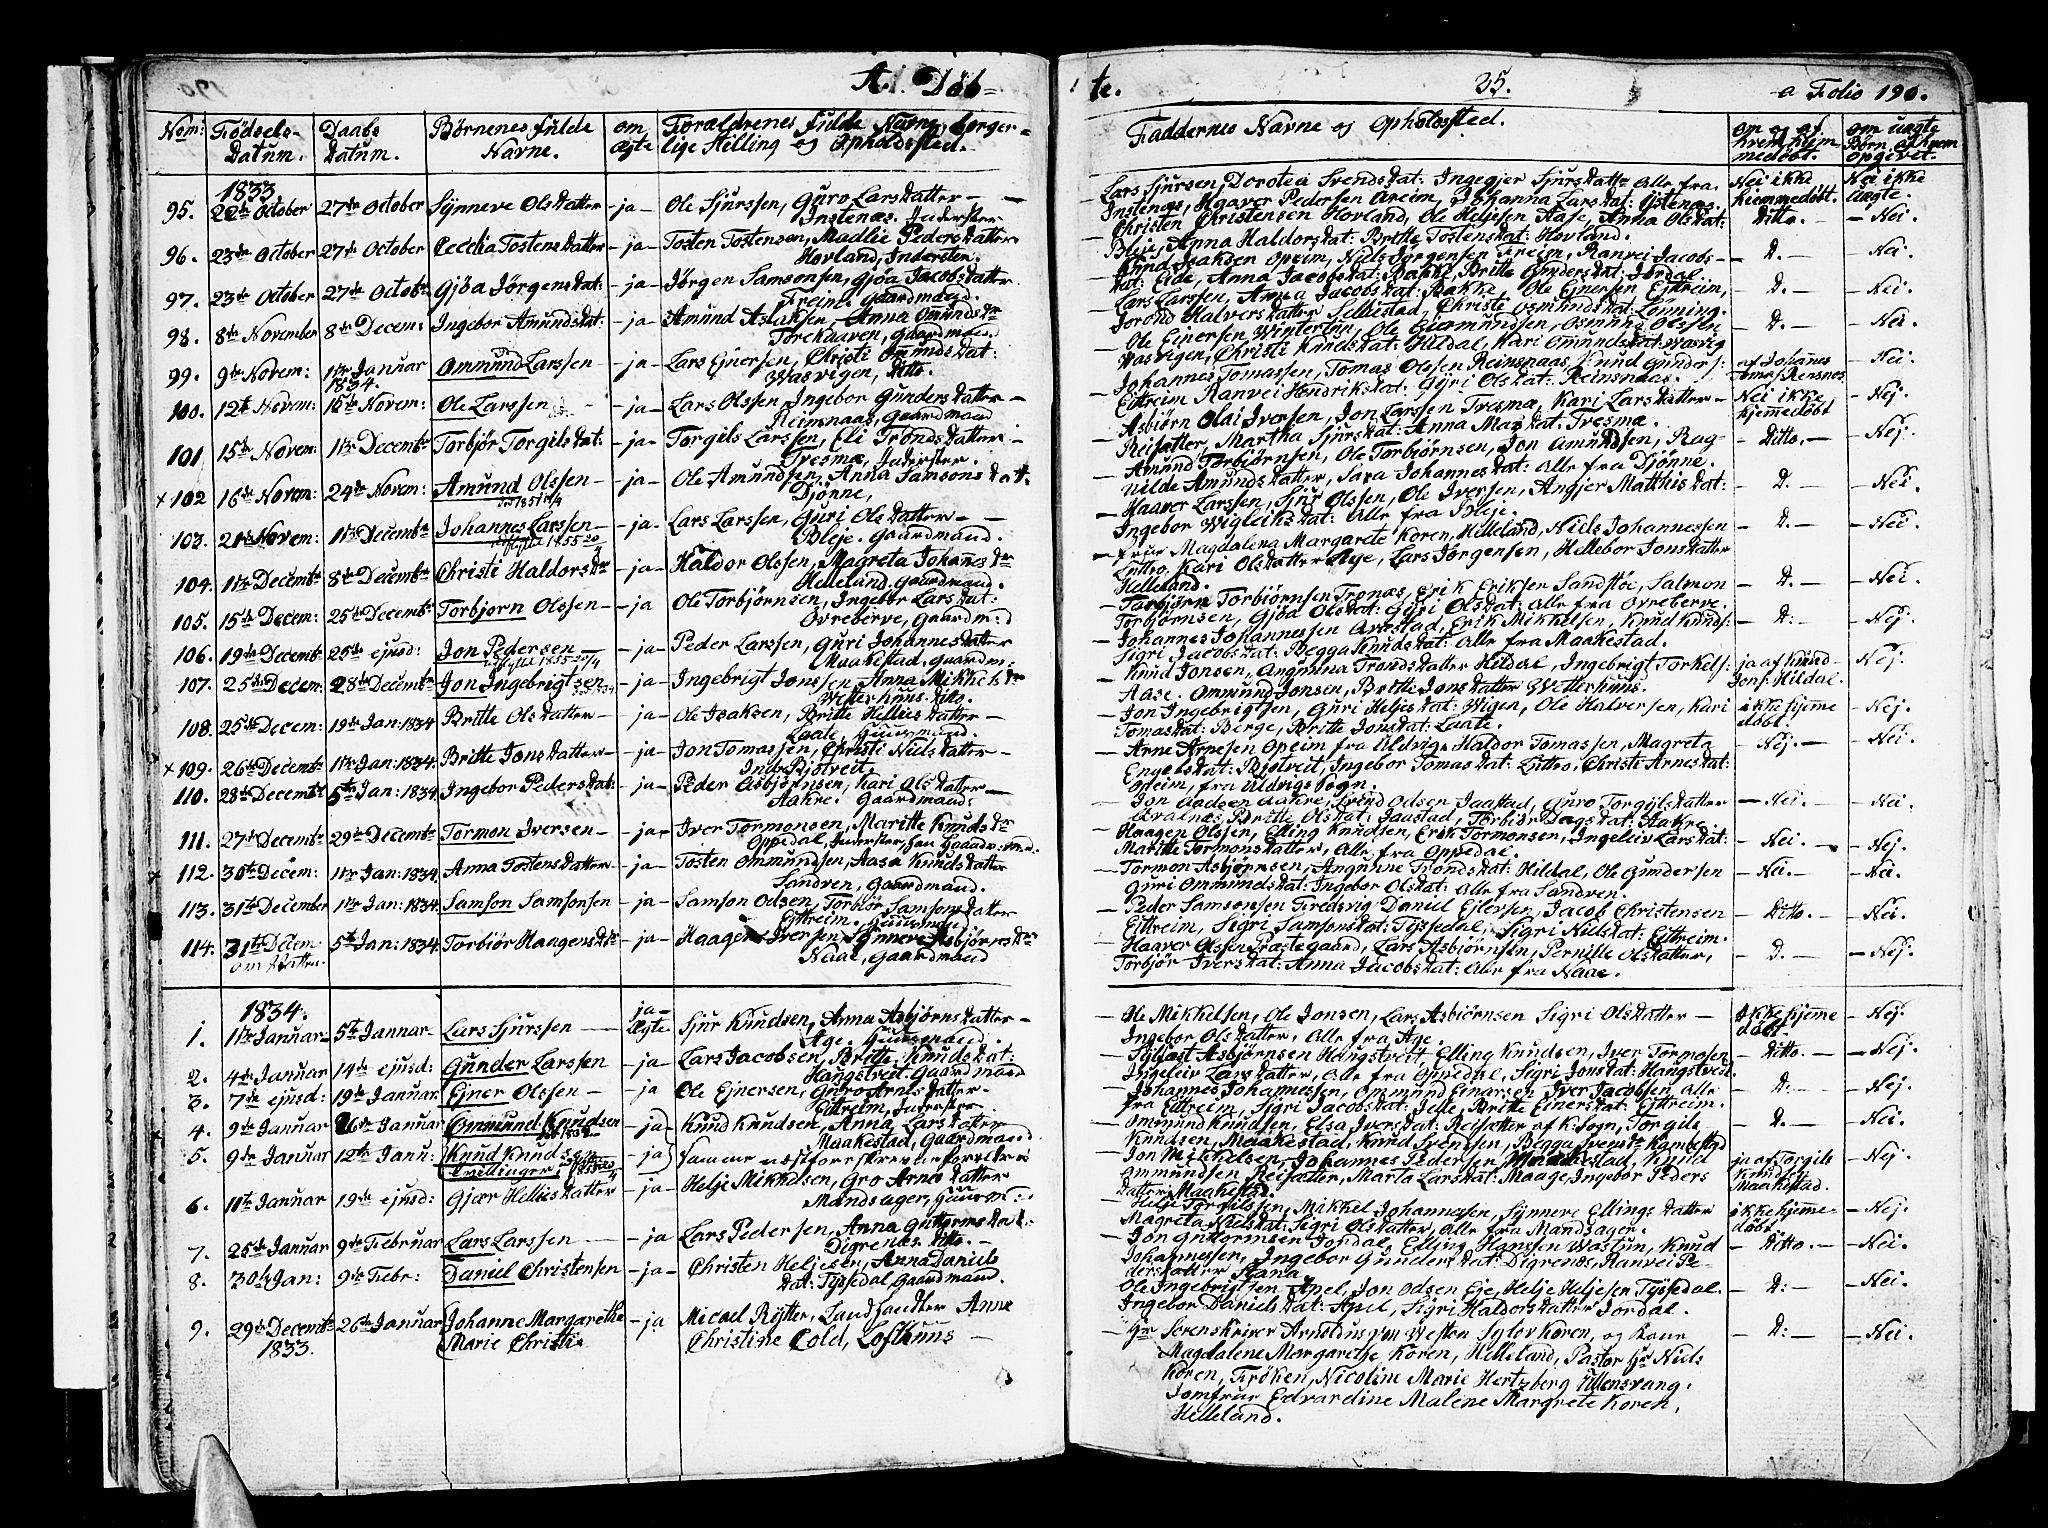 A. Döb=
Nom:
Födsels-
Datum.
Daabs
Datum.
Börnenes fulde
Navne.
om
ægte
Forældrenes fulde Navne, borger=
lige Stilling og Opholdssted.
1833
95. October 27de October Synneve Olsdatter - ja - Ole Sjurssen, Guro Larsdatter -
Instenæs. Inderster
96. 23de October 27de October Cecelia Tostensdatter - ja - Tosten Tostensen, Madlie Pedersdatter
Hovland, Indersten.
97. 23de October 27de Octobr Gjöa Jörgensdat: - ja - Jörgen Samsonsen, Gjöa Jacobsdatter
Freim. Gaardmand.
98. 8de November 8de Decem: Ingebor Amundsdat: - ja - Amund Aslaksen, Anna Omundsdr
Gaardmand
99. 9de Novem: 1ste Januar 1834. Ommund Larssen - ja - Lars Ejnersen, Christi Omundsdat:
Wasvigen, ditto.
100. 12te Novem: Novem: Ole Larssen - ja - Lars Olssen Ingebor Gundersdatter -
Reinsnaas, Gaardmand
101 15de Novem: 1ste Decembr Torbjör Torgilsdat: - ja - Torgils Larssen, Eli Trondsdatter -
Tresmæ, Inderster.
x 102 16de Novem: 24de Novem: Amund Olssen - ja - Ole Amundsen, Anna Samsonsdat.
Djönne,
103. 21de Novem: 1ste Decembr Johannes Larssen - ja - Lars Larssen, Guri Olsdatter -
Bleje. Gaardmand.
104. 1ste Decembr 8de Decembr Christi Haldorsdr - ja - Haldor Olssen, Magreta Johannesdr
Helleland, Gaardmand.
105. 15de Decem: 25de Decembr Torbjorn Olssen - ja Ole Torbjörnsen, Ingebor Larsdat:
Ovreberve, Gaardm:d
106. 19de Decemb 25de ejusd: Jon Pedersen - ja - Peder Larssen, Guri Johannesdatter
Maakestad, Gaardm:
107. 25de Decem: 28de Decembr Jon Ingebrigtsen - ja - Ingebrigt Jonssen, Anna Mikkelsdr
Wetterhuus. ditto.
108. 25de Decem: 19de Jan: 1834 Britte Olsdatter - ja - Ole Isaksen, Britte Helliesdatter -
Laate, Huusmand.
x 109. 26de Decembr 1ste Jan: 1834. Britte Jonsdatter - ja - Jon Tomassen, Christi Nielsdatter -
Ind: Bjotveit.
110. 28de Decembr 5te Jan: 1834. Ingebor Pedersdat: - ja - Peder Asbjörnsen, Kari Olsdatter -
Aakre. Gaardmand.
111. 27de Decembr 29de Decembr Tormon Iversen - ja - Iver Tormonsen, Maritte Knudsdr
Oppedal, Inderster,
112. 30te Decem: 1ste Jan: 1834. Anna Tostensdatter - ja - Tosten Ommundsen, Aasa Knudsdatter
Sandven, Gaardmand.
113. 31te December 1ste Jan: 1834. Samson Samsonsen - ja - Samson Odsen, Torbör Samsonsdatter
Eittreim, Huusmand
114. 31te Decem 5te Jan: 1834. Torbiör Haagensdr - ja - Haagen Iversen, Synneve Asbjörnsdr
om Natten. Naae, Gaardmand
1834.
1. 1ste Januar 5te Januar - Lars Sjurssen - ja - Ægte Sjur Knudsen, Anna Asbjörnsdatter -
Age. Huusmand.
2. 4de Januar 14de ejusd: Gunder Larssen - ja - Lars Jacobsen, Britte Knudsdat:
Haugstveit. Gaardmand
3. 7de ejusd: 19de Januar Ejner Olssen - - ja Ole Ejnersen, Guro Arnesdatter -
Eittreim, Inderster.
4. 9de Januar Januar Ommund Knudsen - ja Knud Knudsen, Anna Larsdatter
Maakestad, Gaardmand
5. 9de Januar 12te Janu: Knud Knuds - ja
Tvillinger
6. 11te Januar 19de ejusd: Gjær Helliesdatter - ja - Helje Mikkelsen, Gro Arnesdatter
Mandsager, Huusm:
7. 25de Januar 9de Februar Lars Larssen - - ja Lars Pedersen, Anna Guttormsdat:
Digrenæs. ditto. -
8. 30te Jan: 9de Febr: Daniel Christensen - ja - Christen Heljesen, Anna Daniels
dat: Tyssedal Gaardmand.
9. 29de Decembr 1833. 26de Januar Johanne Margarethe - ja Micael Rytter, Landhandler Anne
Marie Christi Christine Cold, Lofthuus -
te.
35.
a Folio 190.
Faddernes Navne og Opholdssted.
om og af
hvem hjem-
medöbt.
om uægte
Börn af hvem
opgivet.
Lars Sjursen, Dorotea Svendsdat: Ingegjer Sjursdatter Alle fra. Nei ikke Nei ikke
Instenæs, Haaver Pedersen Areim, Johanna Larsdat: Istenæs. hiemmedöbt. uægte.
Christen Christensen Hovland, Ole Heljesen Aase, Anna Olsdat: Ditto. - - Nei.
Bleie, Anna Haldorsdat: Britte Tostensdat: Hovland.
Knud Isaksen Opeim, Niels Jörgensen Freim, Ranvei Jacobs- - D. - - Nei.
dat: Eide, Anna Jacobsdat: Bakke, Britte Gundersdat: Jordal.
Lars Larssen, Anna Jacobsdat: Bakke, Ole Ejnersen Eittreim, - D. - - Nei.
Jorond Halversdatter Sellestad, Christi Osmundsdat: Lönning.
Ole Einersen Wintertun, Ole Geirmundsen, Osmund Olssen - D. - - Nei.
Wasvigen, Christi Knudsdat: Hildal, Kari Omundsdat: Wasvig
Johannes Tomassen, Tomas Olssen Reinsnaas, Knud Gunders: af Johannes - Nei.
Eittreim Ranvei Hendriksdat: Gyri Olsdat: Reinsnaas. Tomes: Rensnos
Asbiörn Olai Iversen, Jon Larssen Tresmæ, Kari Larsdatter - Nei ikke - Nej.
Reisæter, Martha Sjursdat: Anna Mardat: Tresmæ. hjemedöbt
Amund Torbiörnsen, Ole Torbiörnsen, Jon Amundsen, Rag- - Ditto. - - Nej.
nilde Amundsdatter, Sara Johannesdat: Alle fra Djönne.
Haaver Larssen, Sjur Olssen, Ole Iversen, Angjer Matthisdat: - D. - - Nei.
Ingebor Wigleiksdat: Alle fra Bleje.
- Frue Magdalena Margarete Koren, Helleland, Niels Johannessen - D. - - Nei.
Luttro, Kari Olsdatter Age, Lars Jörgensen, Hellebor Jonsdatter
Helleland.
- Torbjörn Torbiörnsen Tronæs, Erik Eriksen Sandstöe, Salmon - D. - - Nei.
Torbjörnsen, Gjöa Olsdat: Gyri Olsdat: Alle fra Ovreberve.
- Johannes Johannessen Avrstad, Erik Mikkelsen, Knud Knuds: - D: - - Nej.
Sigri Jacobsdat: Begga Knudsdat: Alle fra Maakestad.
- Knud Jonsen, Angunna Trondsdatter Hildal, Ingebrigt Torkels: ja af Knud Nej.
Aase. Ommund Jonsen, Britte Jonsdatter Wetterhuus. Jons: Hildal.
- Jon Ingebrigtsen, Guri Heljesdat: Wigen, Ole Halversen, Kari ikke hjeme - Nej.
Tomasdat: Berge, Britte Jonsdat: Laate. döbt.
- Arne Arnesen Opeim fra Uldvig, Haldor Tomassen, Magreta - Nej. - - Nei.
Engelsdat: Bjotveit, Ingebor Tomasdat: Luttro. Christi Arnesdat:
Opeim, fra Uldvigs Sogn.
- Jon Aadsen Aakre, Svend Odsen Jaastad, Guro Torgilsdatter - Nei. - - Nei.
Qvalnæs, Britte Olsdat: Jaastad, Torbiör Dagsdat: Aakre.
Haagen Olssen, Elling Knudsen, Erik Tormonsen, Ingeleiv Larsdat: - Nei. - - Nej.
Maritte Tormonsdatter, Alle fra Oppedal.
- Tormon Asbjörnsen, Angunne Trondsdat: Hildal, Ole Gundersen - Nei. - - Nei.
Guri Ommundsdat: Ingebor Olsdat: Alle fra Sandven.
- Peder Samsonsen Fredsvig Daniel Ejlersen, Jacob Christensen - Ditto. - - Nei.
Eittreim, Sigri Samsonsdat: Tyssedal, Sigri Nielsdat: Eittreim.
- Haaver Olssen Præstegaard, Lars Asbjörnsen, Pernille Olsdatter, - D. - - Nej.
Torbjör Iversdat: Anna Jacobsdat: Alle fra Naae.
- Ole Mikkelsen, Ole Jonsen, Lars Asbiörnsen Sigri Olsdatter - Ikke hjeme - Nej.
Ingebor Olsdatter, Alle fra Age. döbt.
- Sjovast Asbjörnsen Haugstveit Elling Knudsen, Iver Tormosen, - Ditto. - - Nej.
Ingeleiv Larsdatter, Alle fra Oppedal, Sigri Jonsdat: Haugstveit.
- Johannes Johannessen, Ommund Einarsen Iver Jacobsen, Alle - D: - - Nej.
fra Eittreim, Sigri Jacobsdat: Jelle, Britte Einersdat: Eittreim.
- Ommund Knudsen, Elsa Iversdat: Reisæter af K: Sogn, Torgils - D. - - Nei.
Knudsen, Maakestad, Knud Svendsen, Begga Svensdr Kambestad
- Jon Mikkelsen, Johannes Pedersen, Maakestad, Knud ja af Torgils - Nej.
Ommundsen, Reisæter, Marta Larsdat: Maage, Ingebor Peders Knudsen
datter Maakestad. Maakestad.
- Helje Torgilssen, Mikkel Johannesen, Synneve Ellingsdatter ikke hjeme- - Nej.
Magreta Nielsdat: Sigri Olsdatter, Alle fra Mandsager. döbt.
- Jon Guttormsen Jordal, Elling Hanssen Wastun, Knud - Ditto. - - Nei.
Johannessen, Ingebor Gundersdat: Digrenæs, Ranvei Pe-
dersdatter
Ole Ingebrigtsen Apel, Jon Odsen Eje, Helje Heljesen Tyssedal. - D: - - Nei.
Ingebor Danielsdat: Apel, Sigri Haldorsdatter Jordal.
- Hr Sorenskriver Arnoldus v'on Westen Sylov Koren, og Kone - D: - - Nei.
Magdalene Margarethe Koren, Helleland, Pastor Hr Niels
Koren, Fröken, Nicoline Marie Hertzberg Ullensvang.
Jomfrue Edvardine Malene Margrete Koren,
Helleland.